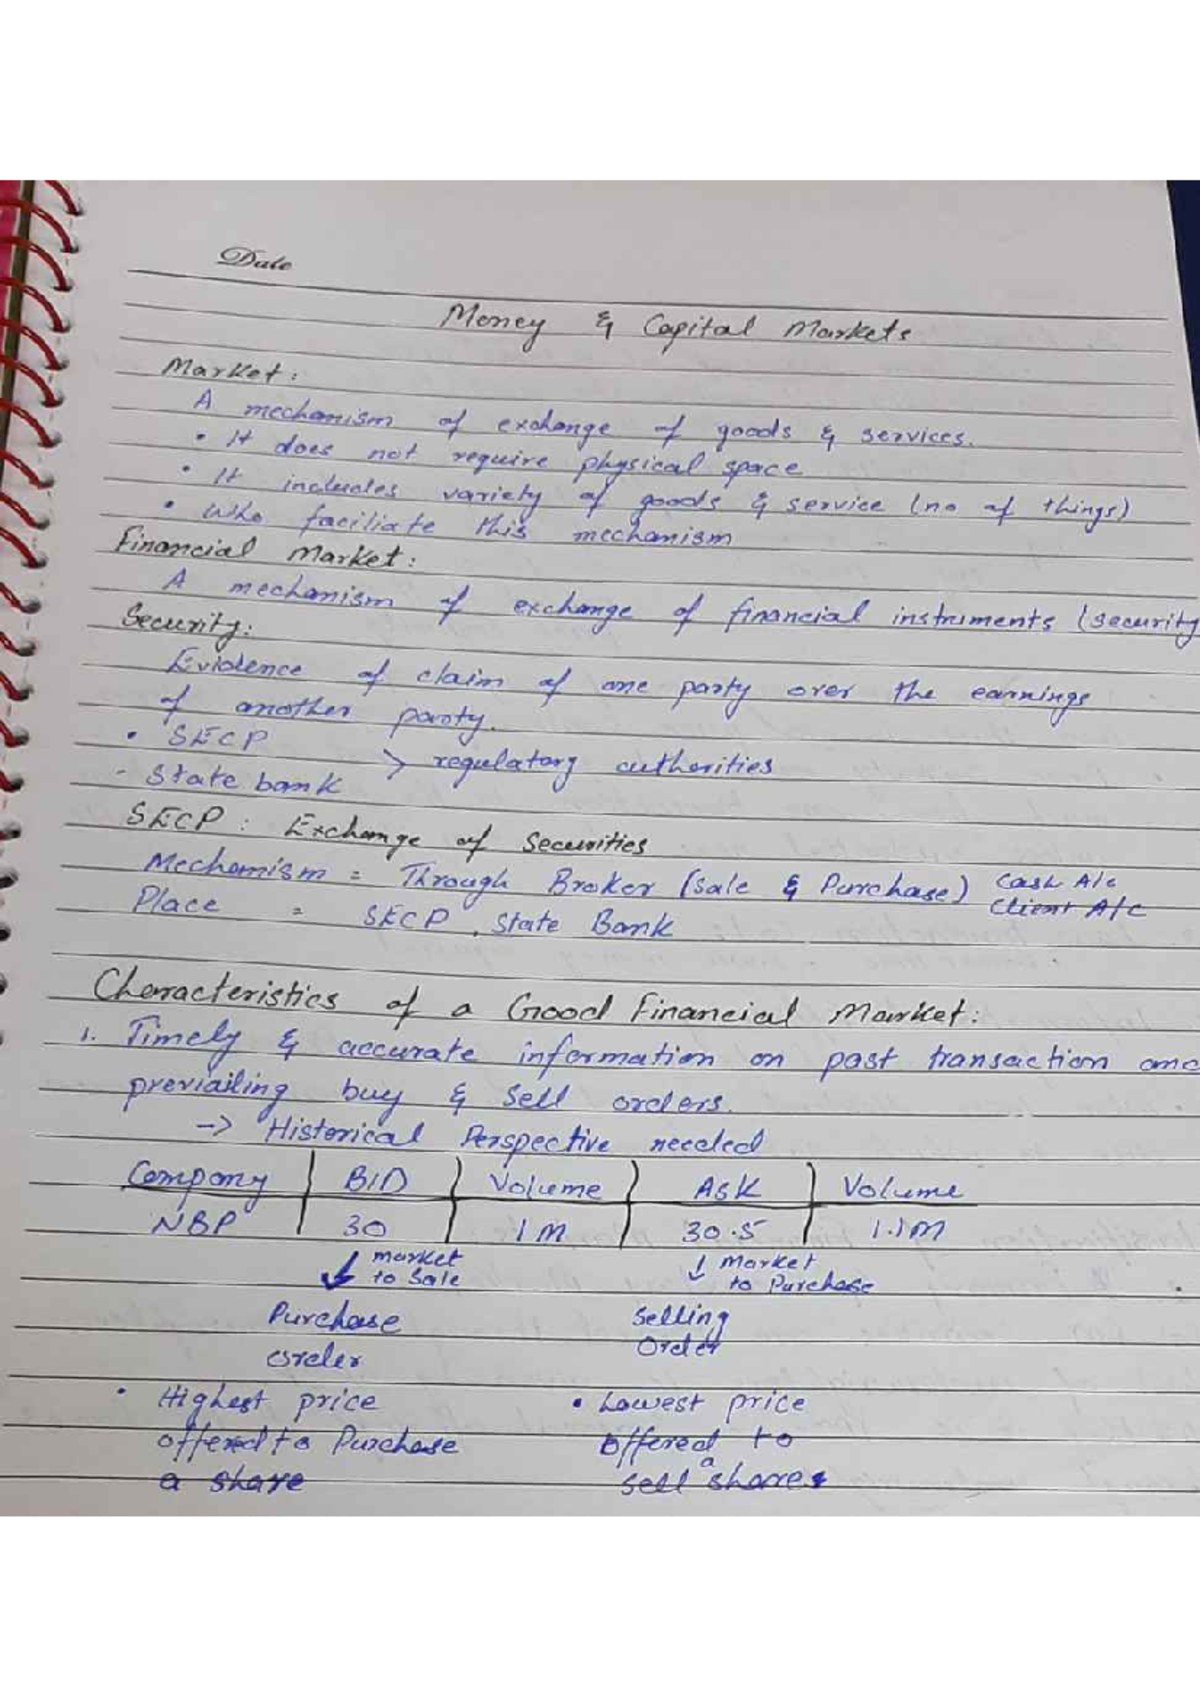 Date
Money & Capital Markets
Market:
A mechanism of exchange of goods & services.
• It does not require physical space
• It includes variety of goods & service (no of things)
• Who faciliate this mechanism
Financial Market:
A mechanism of exchange of financial instruments (security
Security:
Evidence of claim of one party over the earnings
of another party.
• SECP > regulatory authorities
- State bank
SECP: Exchange of Securities
Mechanism = Through Broker (Sale & Purchase) Cash A/c
Client A/C
Place = SECP, State Bank
Characteristics of a Good Financial Market:
1. Timely & accurate information on past transaction and
previailing buy & sell orders.
-> Historical Perspective needed
Company | BID | Volume | ASK | Volume
NBP | 30 | 1M | 30.5 | 1.1M
↓ market to Sale ↓ Market to Purchase
Purchase order Selling Order
• Highest price • Lowest price
offered to Purchase offered to
a share sell a shares